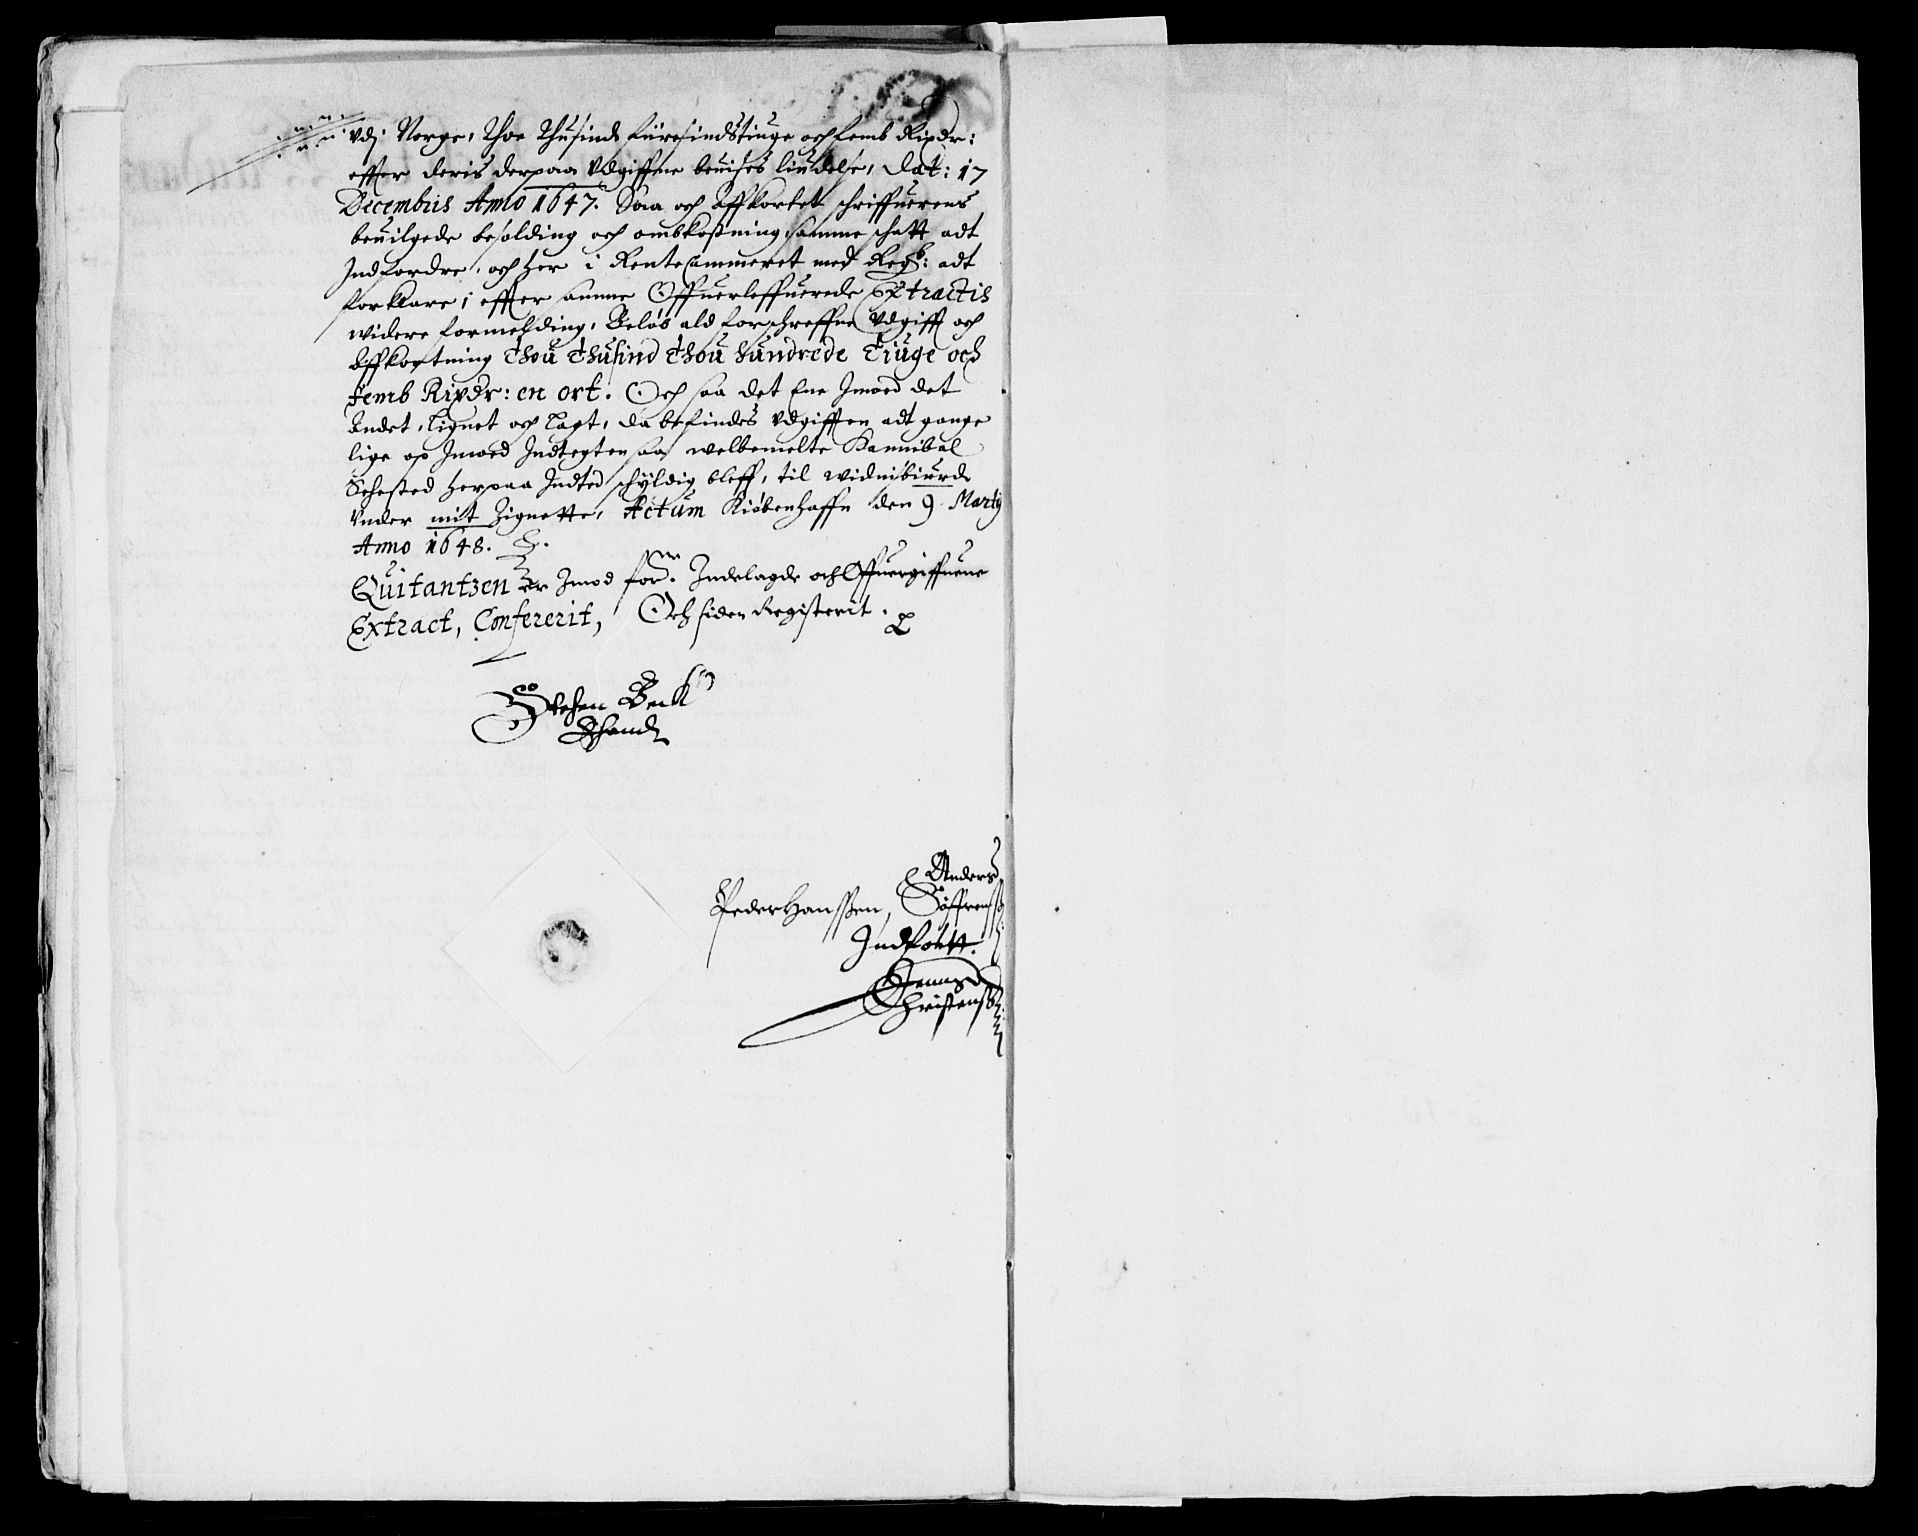 vdj Norge, Thoe Thusind fiiresindstiuge och femb Rixdr:
effter deris derpaa vdgiffne beuises liudelse, Dat: 17
Decembris Anno 1647. Saa och Affkortet schriffuerens
beuilgede besolding och ombkostning, samme schatt adt
Indfordre, och her i Rente Cammeret med Regsk: adt
forklare, effter samme Offuerleffuerede Extractis
widere formelding, Beløb ald forschreffne Vdgifft och
Affkortning thou thusind thou hundrede tiuge och
femb Rixdr: en ort. Och saa det Ene Imoed det
Andet, lignet och lagt, da befindes vdgifften adt gange
lige op Imoed Indtegten saa welbemelte Hannibal
Sehested herpaa Indted schyldig bleff, til widnisbiurd
vnder mit Zignette, Actum Kiøbenhaffn den 9 Martij
Anno 1648.
Quitantzen er Imod for: Indelagde och Offuergiffuene
Extract, Confererit, Och siden Registerit.
Stehen Beck
Ehand
Anders
Peder Hanssen, Søffrens
Indført.
Jenns
Christens